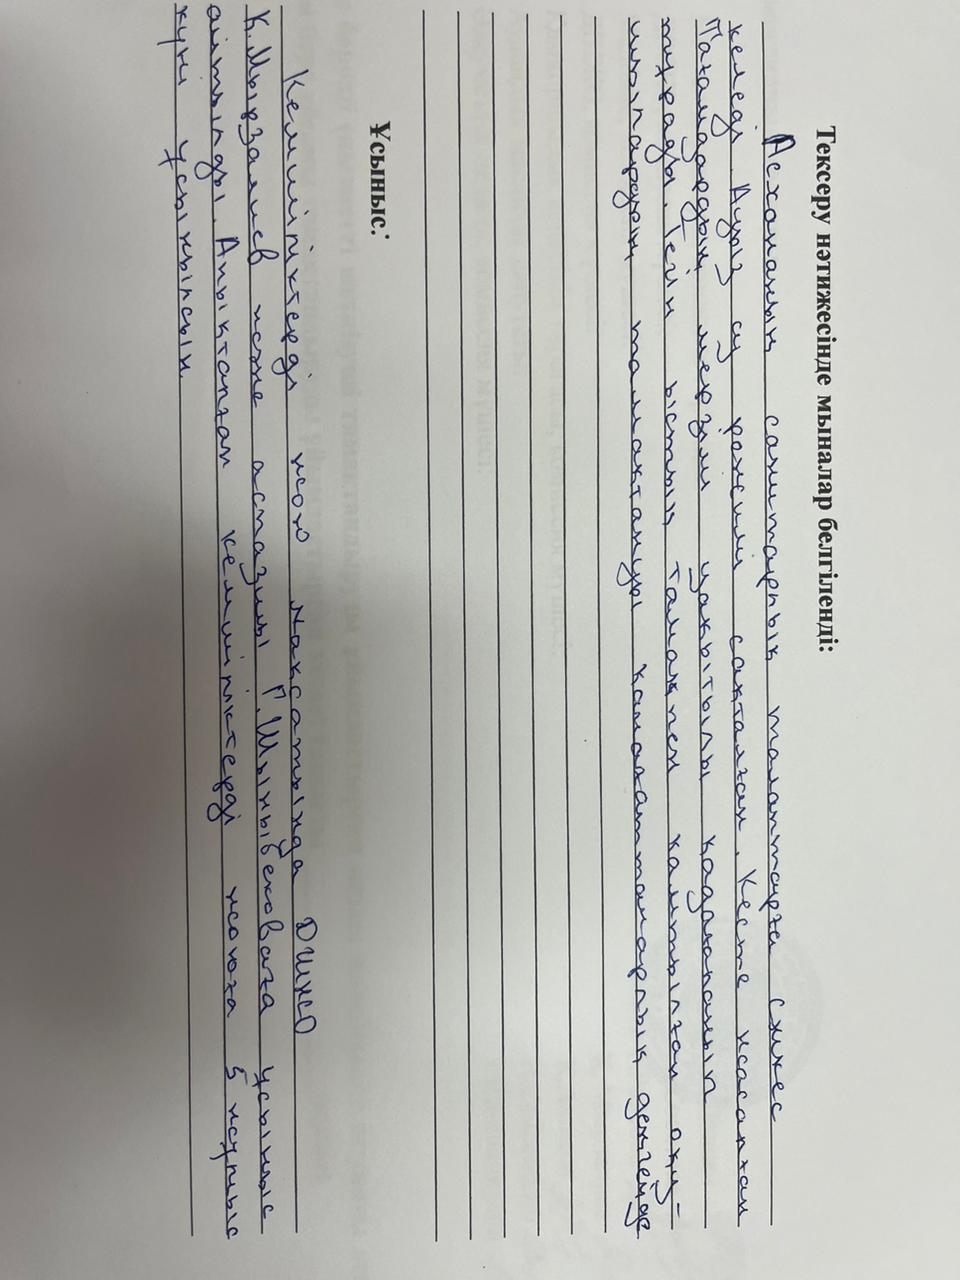 Тексеру нәтижесінде мыналар белгіленді:
Асхананың санитарлық талаптарға сәйкес
келеді. Ауыз су режимі сақталған. Кесте жасалған
Тағамдардың мерзімі уақытылы қадағаланып
тұрады. Тегін ыстық тамақпен қамтылған оқу-
шылардың тамақтануы қанағаттанарлық деңгейде
Ұсыныс:
Кемшіліктерді жою мақсатында ДШЖО
К.Мырзалиев және аспазшы Г.Шыныбековаға ұсыныс
айтылды. Анықталған кемшіліктерді жоюға 5 жұмыс
күні ұсынылсын.